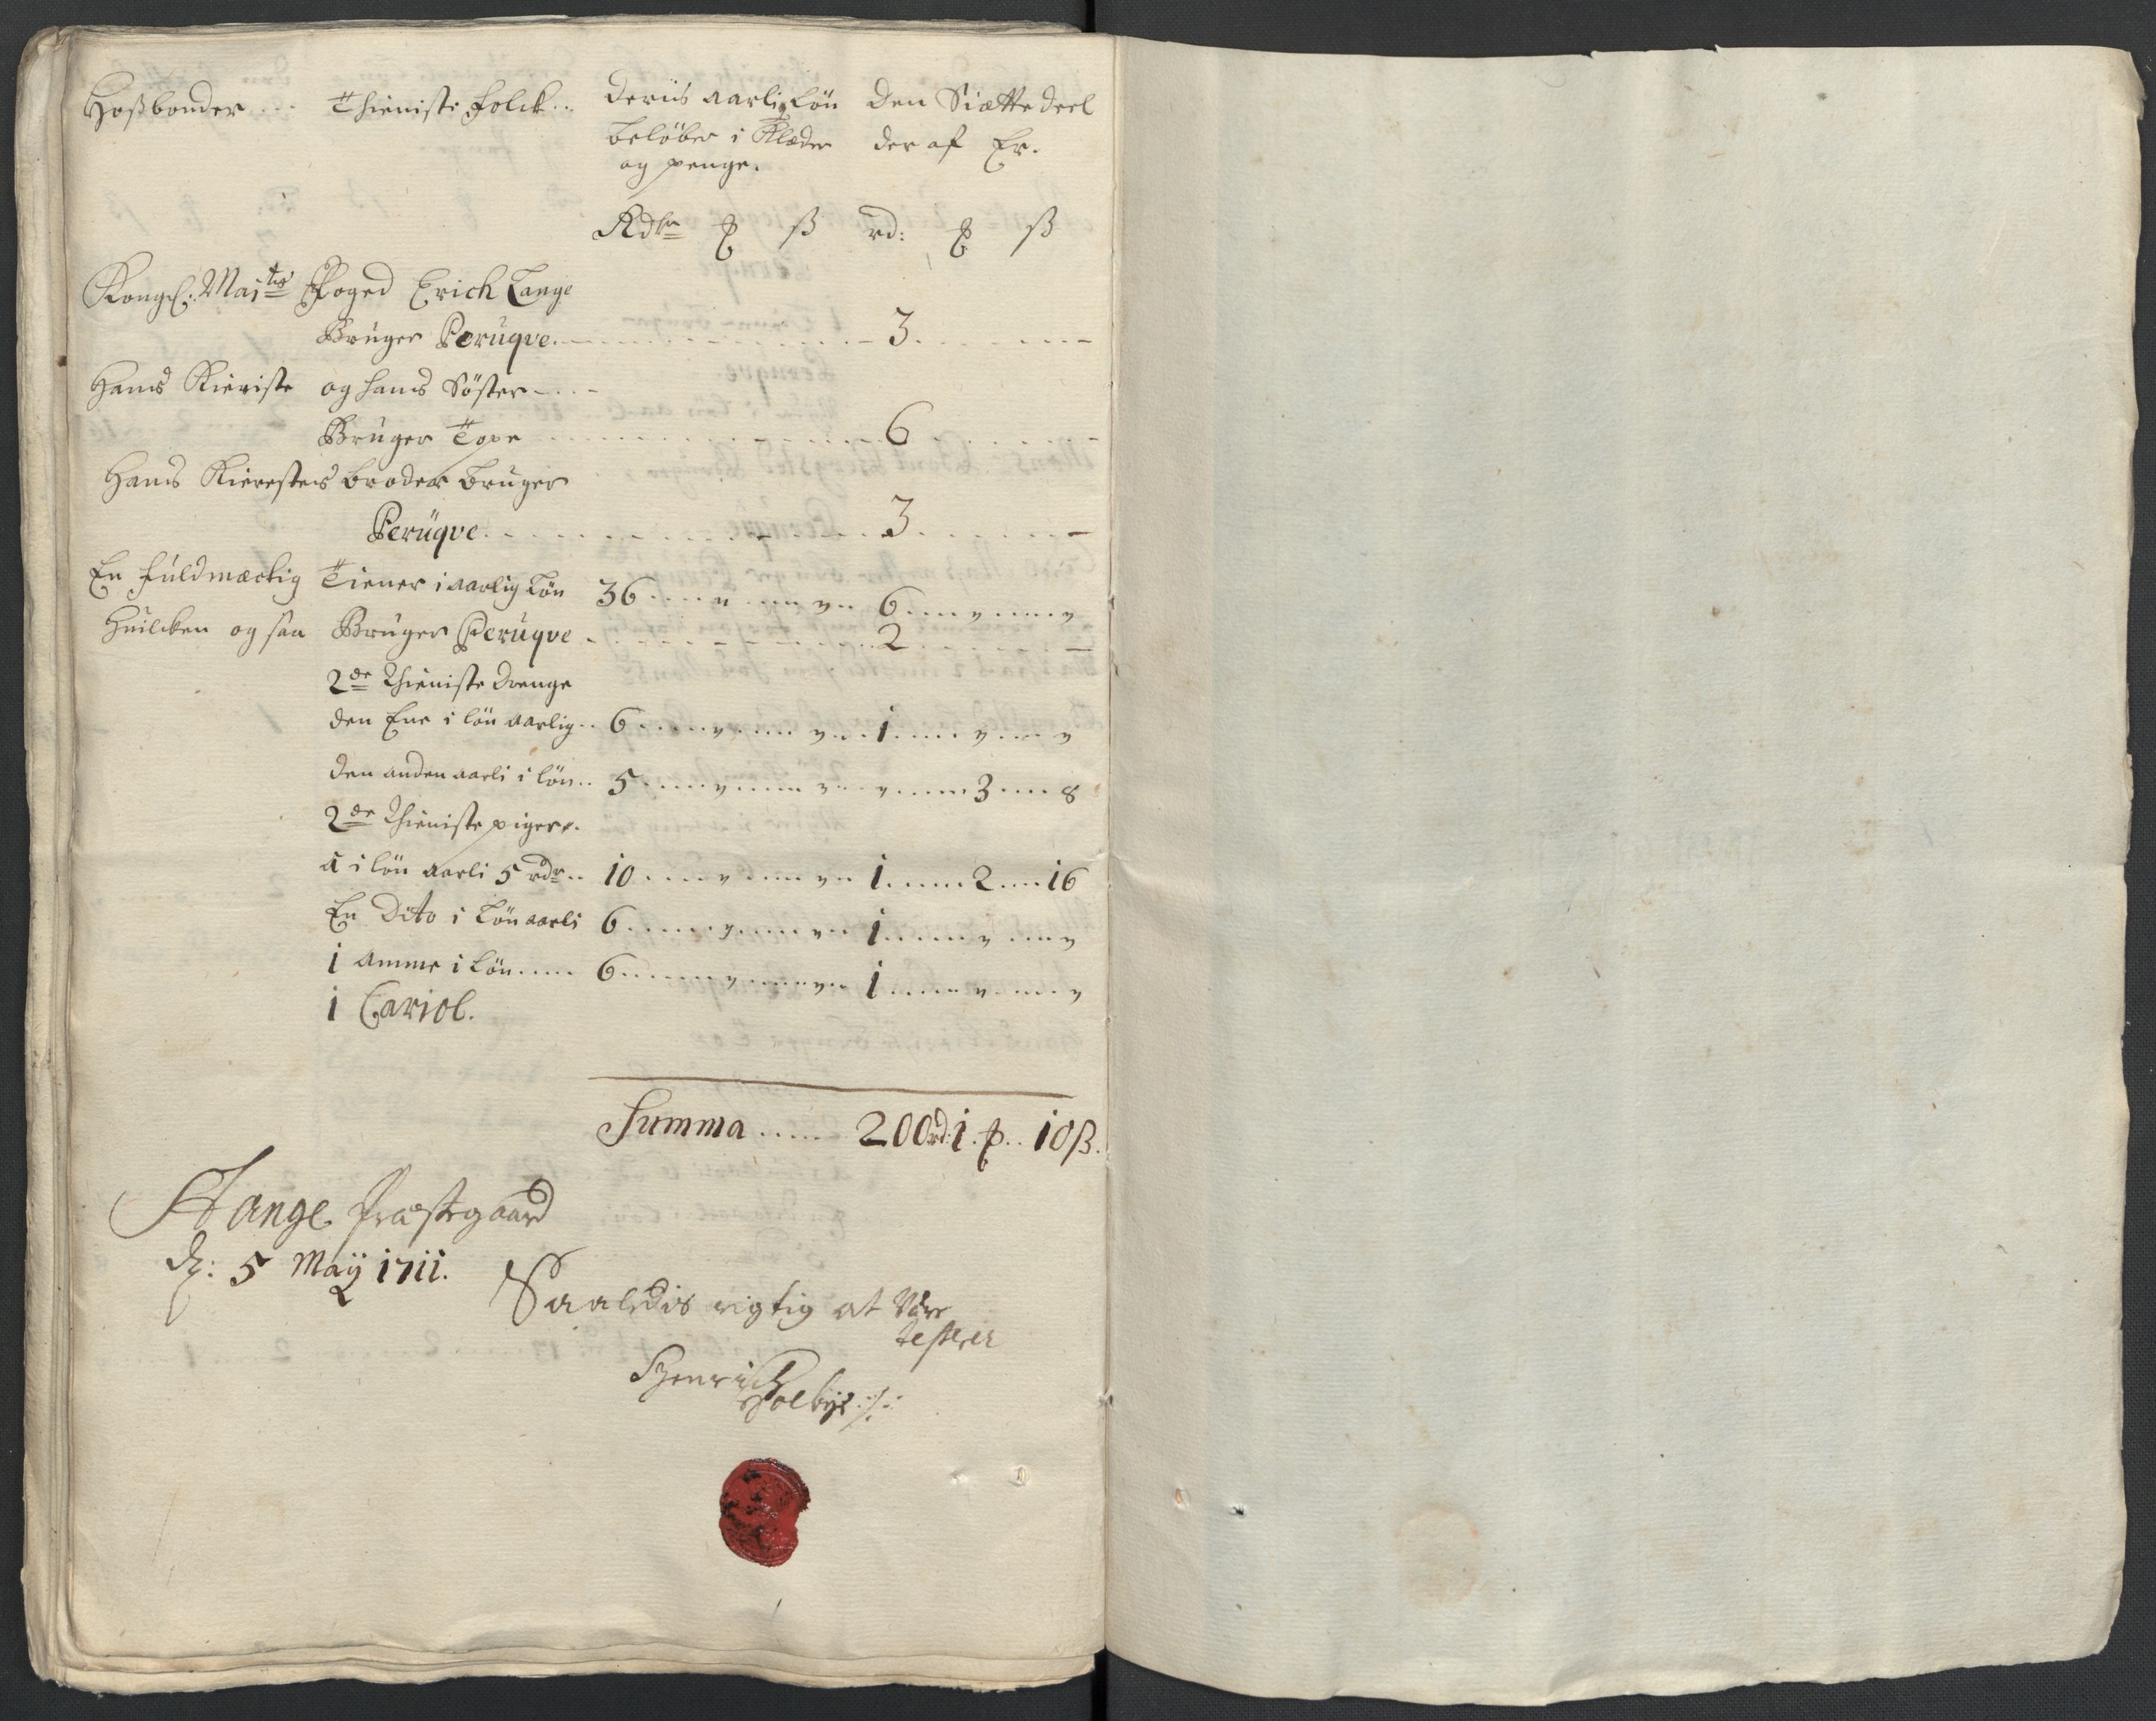 Hoßbonder... Thieniste folck.. Deris aarli Løn Den Siætte deel
beløber i Klæder der af Er.
og penge.
Rdlr ß rd: ß
Kongel: Maits Foged Erich Lange
Bruger Peruqve. 3
Hans Kieriste og hans Söster
Bruger Tope 6
Hans Kieristes broder bruger
Perüqve. 3
En fuldmæctig Tiener i aarlig Løn 36 6
Huilcken og saa Bruger Peruqve 2
2de Thieniste drenge
den Ene i løn aarlig.. 6 1
den anden aarli i løn.. 5 3 8
2de Thieniste piger.
â i løn aarli 5 rdr.. 10 1 2 16
En Dito i Løn aarli 6 1
1 amme i Løn..... 6 1
1 Cariol.
Summa ..... 200 rd: 1. 10 ß.
Stange Præstegaard
d: 5 Maij 1711.
Saaledis rigtig at være
testerer
Henrich